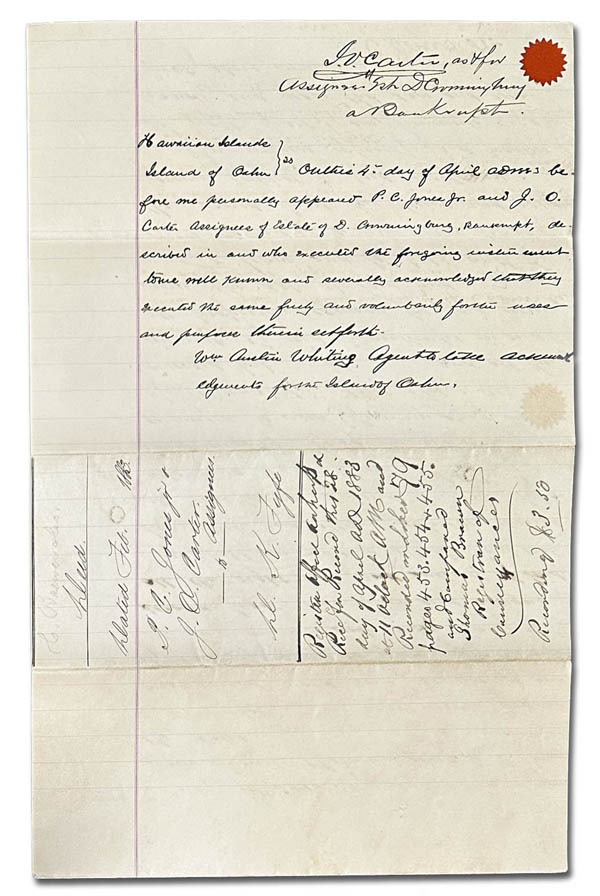 J.O. Carter, as & for
Assignees Est D Cronningburg
a Bankrupt.
Hawaiian Islands
Island of Oahu } ss On this 4th day of April AD 1883 be-
fore me personally appeared P. C. Jones Jr. and J. O.
Carter Assignees of Estate of D. Cronningburg, Bankrupt, de-
scribed in and who executed the foregoing instrument
to me well known and severally acknowledged that they
executed the same freely and voluntarily for the uses
and purposes therein set forth.
Wm Austin Whiting Agent to take acknowl
edgements for the Island of Oahu.
Deed
Dated Feb. 1883.
P. C. Jones Jr &
J. O. Carter
Assignees
to
K. Fyfe
Register Office
Rec'd for Record this 28
day of April AD 1883
at 11 O'clock AM and
Recorded in Liber 79
pages 453.454 & 455.
and Compared
Thomas Brown
Registrar of
Conveyances
Recording $3.50